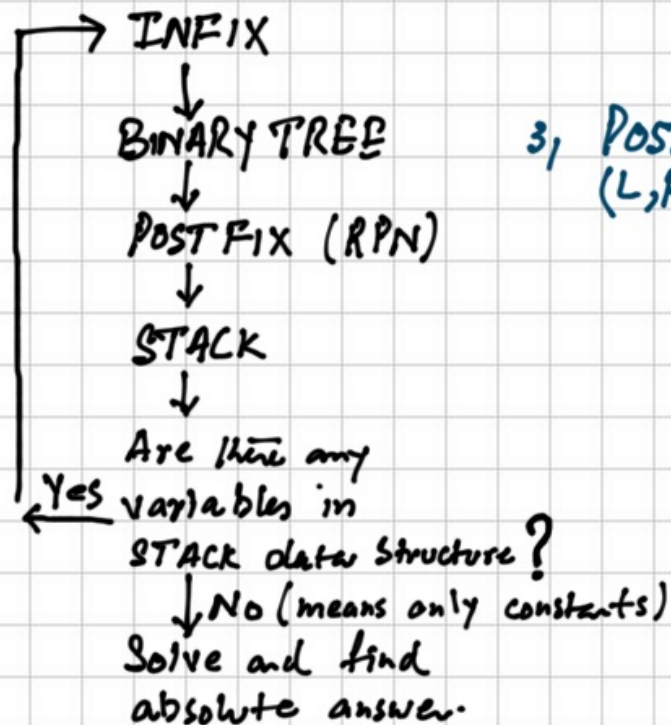 INFIX
BINARY TREE
POSTFIX (RPN)
STACK
Are there any
Yes variables in
STACK data structure?
No (means only constants)
Solve and find
absolute answer.
3,
(L,